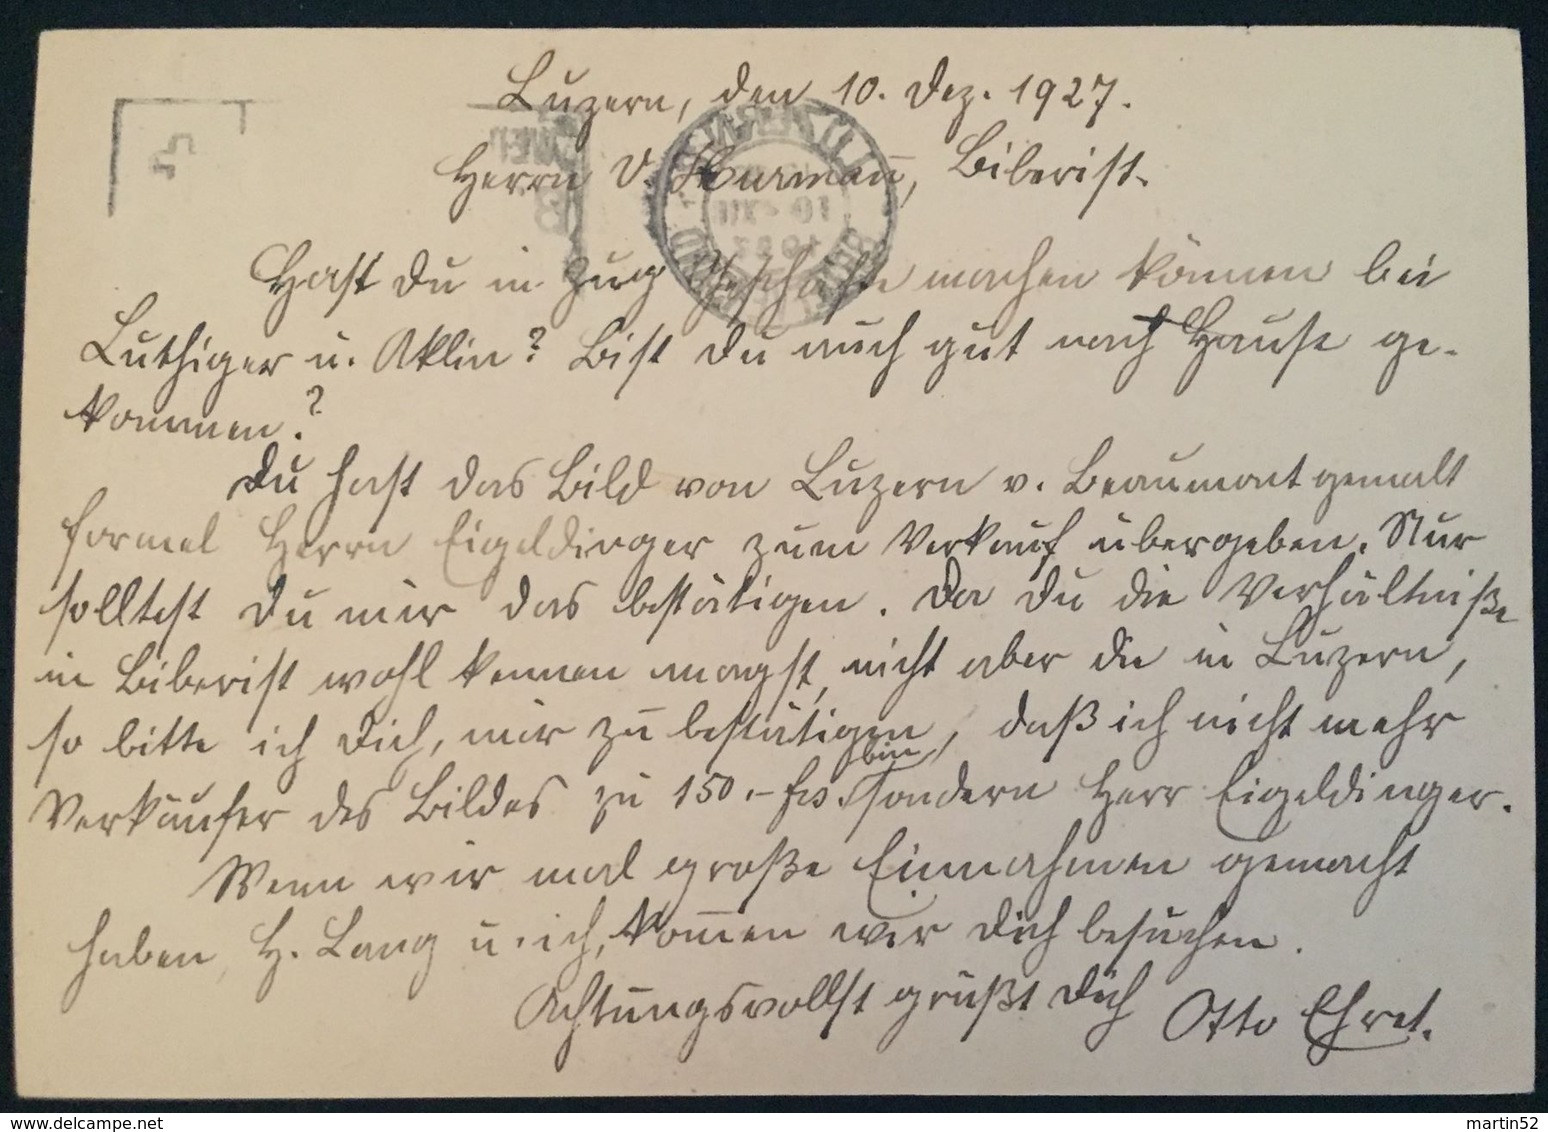 Luzern, den 10. Dez. 1927.
Herrn V. Biberist.
Hast Du in Zug Geschäfte machen können bei
Luthiger u. Aklin? Bist Du auch gut nach Hause ge-
kommen?
Du hast das Bild von Luzern v. Beaumont gemalt
formel Herrn Eigeldinger zum Verkauf übergeben. Nur
solltest Du mir das bestätigen. Da Du die Verhältniße
in Biberist wohl kennen magst, nicht aber die in Luzern,
so bitte ich Dich, mir zu bestätigen, daß ich nicht mehr
Verkäufer des Bildes zu 150.- frs. bin, sondern Herr Eigeldinger.
Wenn wir mal große Einnahmen gemacht
haben, H. Lang u. ich, kom̄en wir Dich besuchen.
Achtungsvollst grüßt Dich Otto Ehret.
martin52